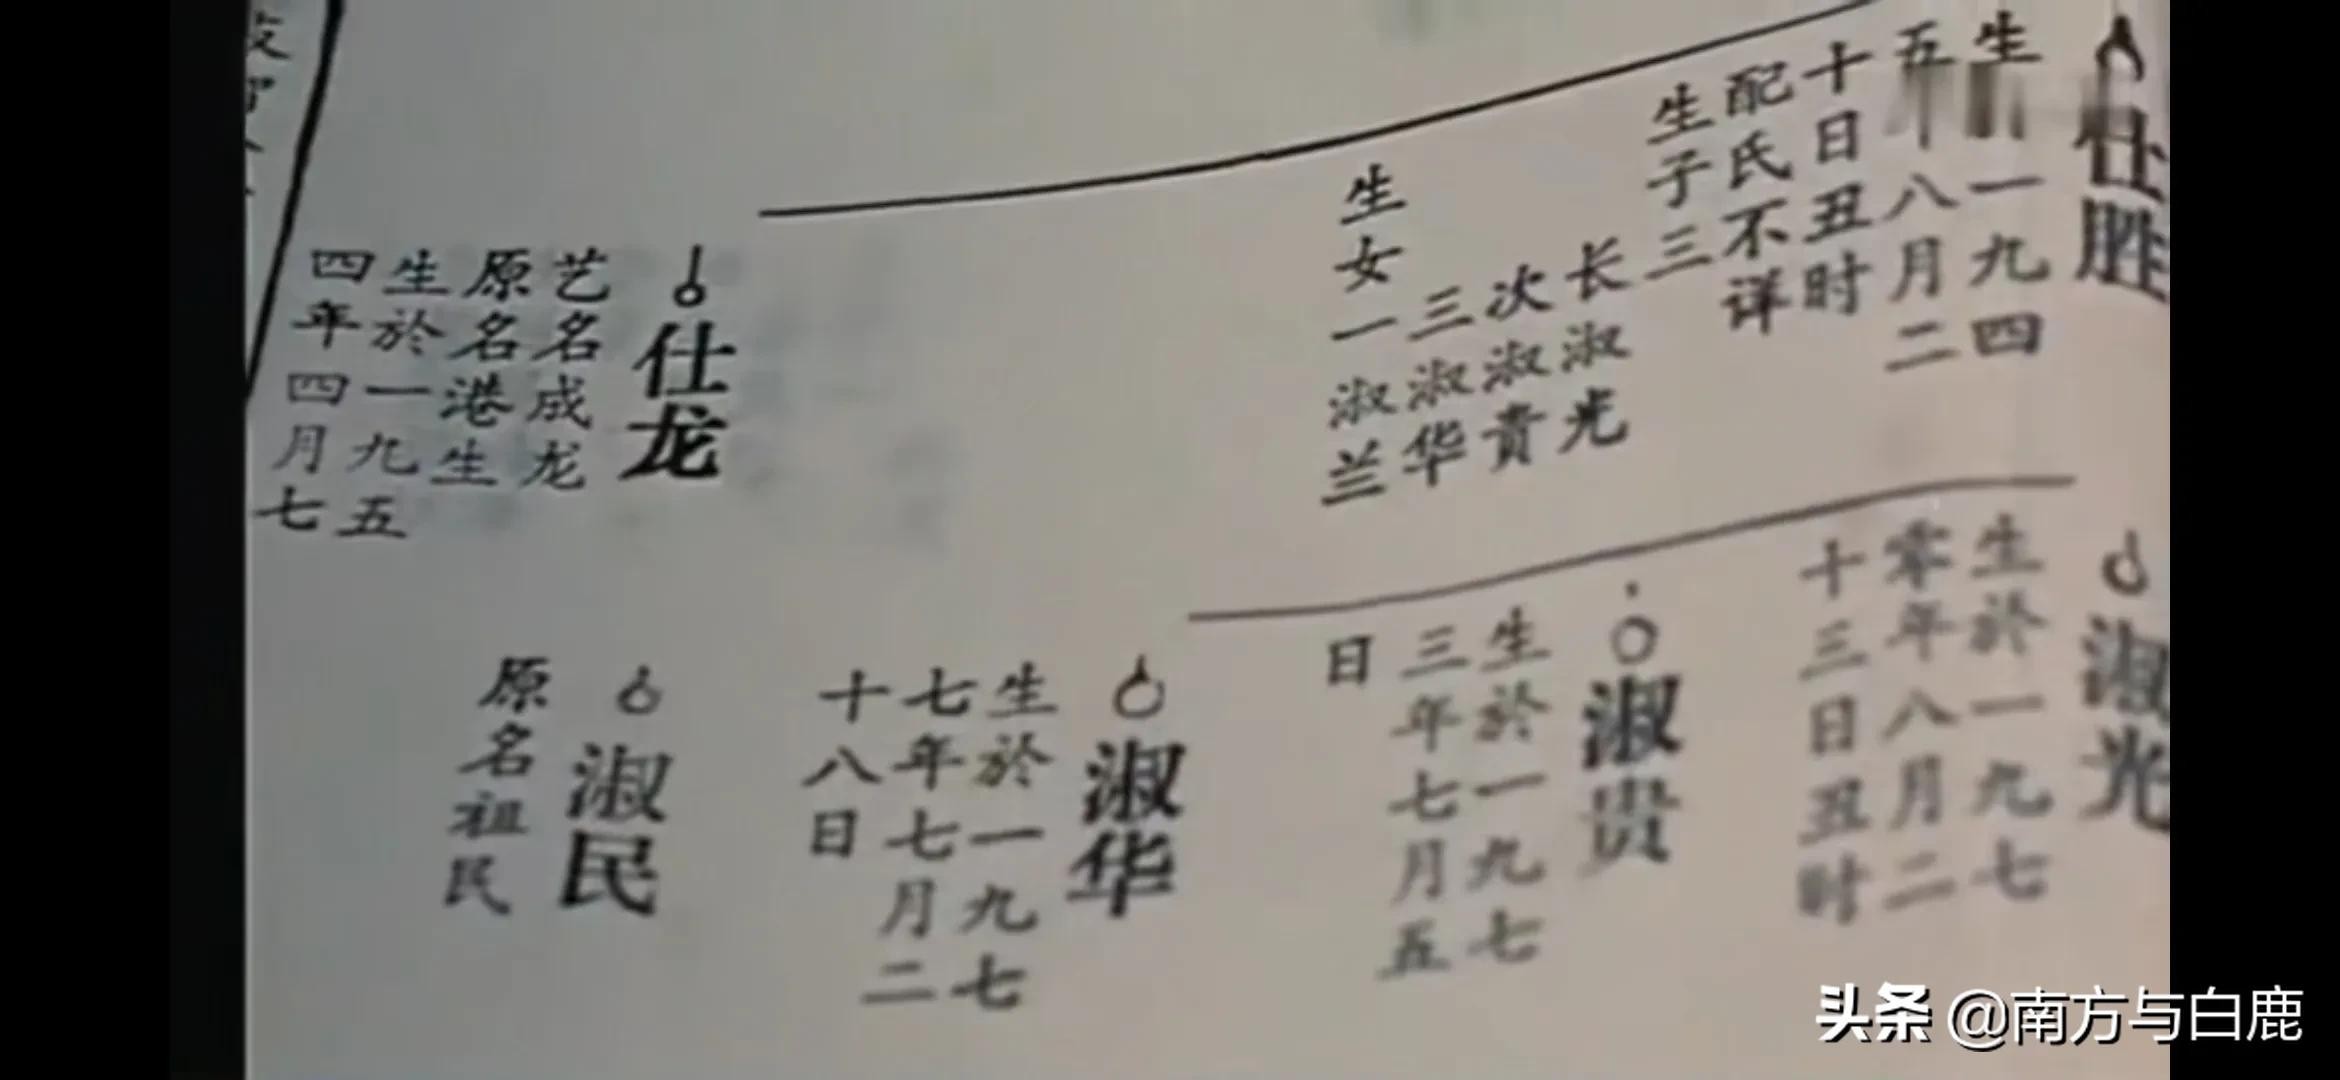 仕胜
生一九四
五年八月二
十日丑时
配氏不详
生子三
长淑光
次淑贵
三淑华
生女一淑兰
仕龙
艺名成龙
原名港生
生於一九五
四年四月七
淑光
生於一九七
零年八月二
十三日丑时
淑贵
生於一九七
三年七月五
日
淑华
生於一九七
七年七月二
十八日
淑民
原名祖民
头条 @南方与白鹿